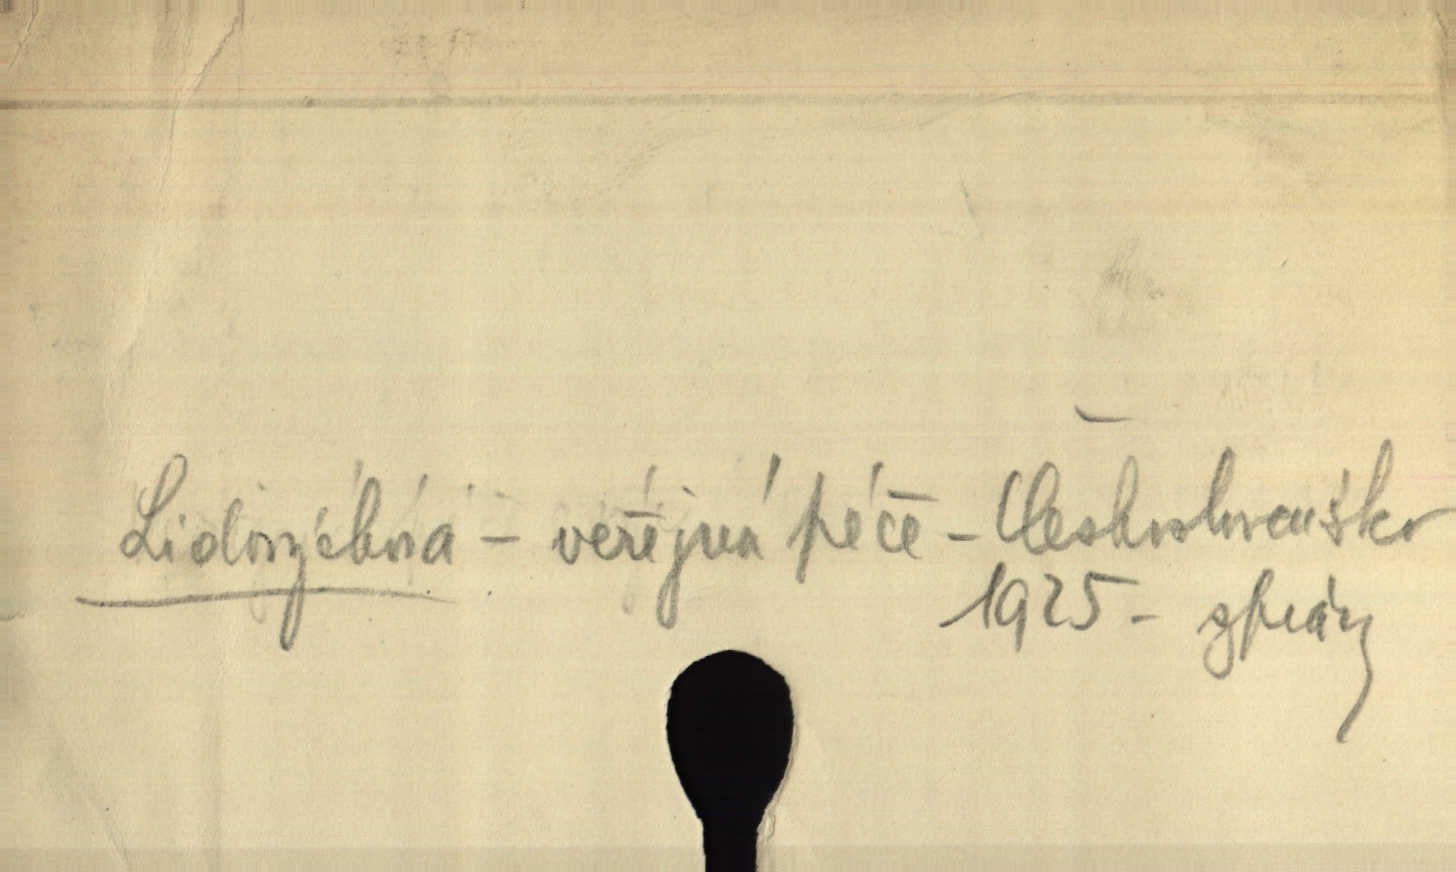 Lidovýchová – veřejná péče – Československo
1925 – zprávy